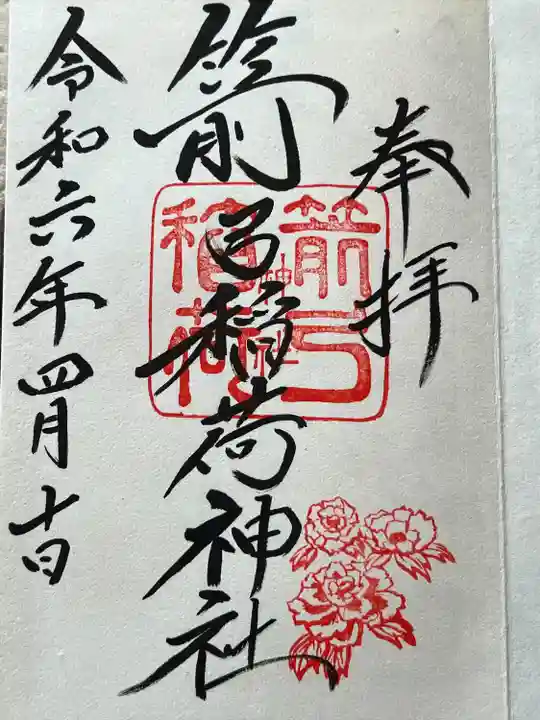 奉拝
箭弓稲荷神社
箭弓
神社
稲荷
令和六年四月十日